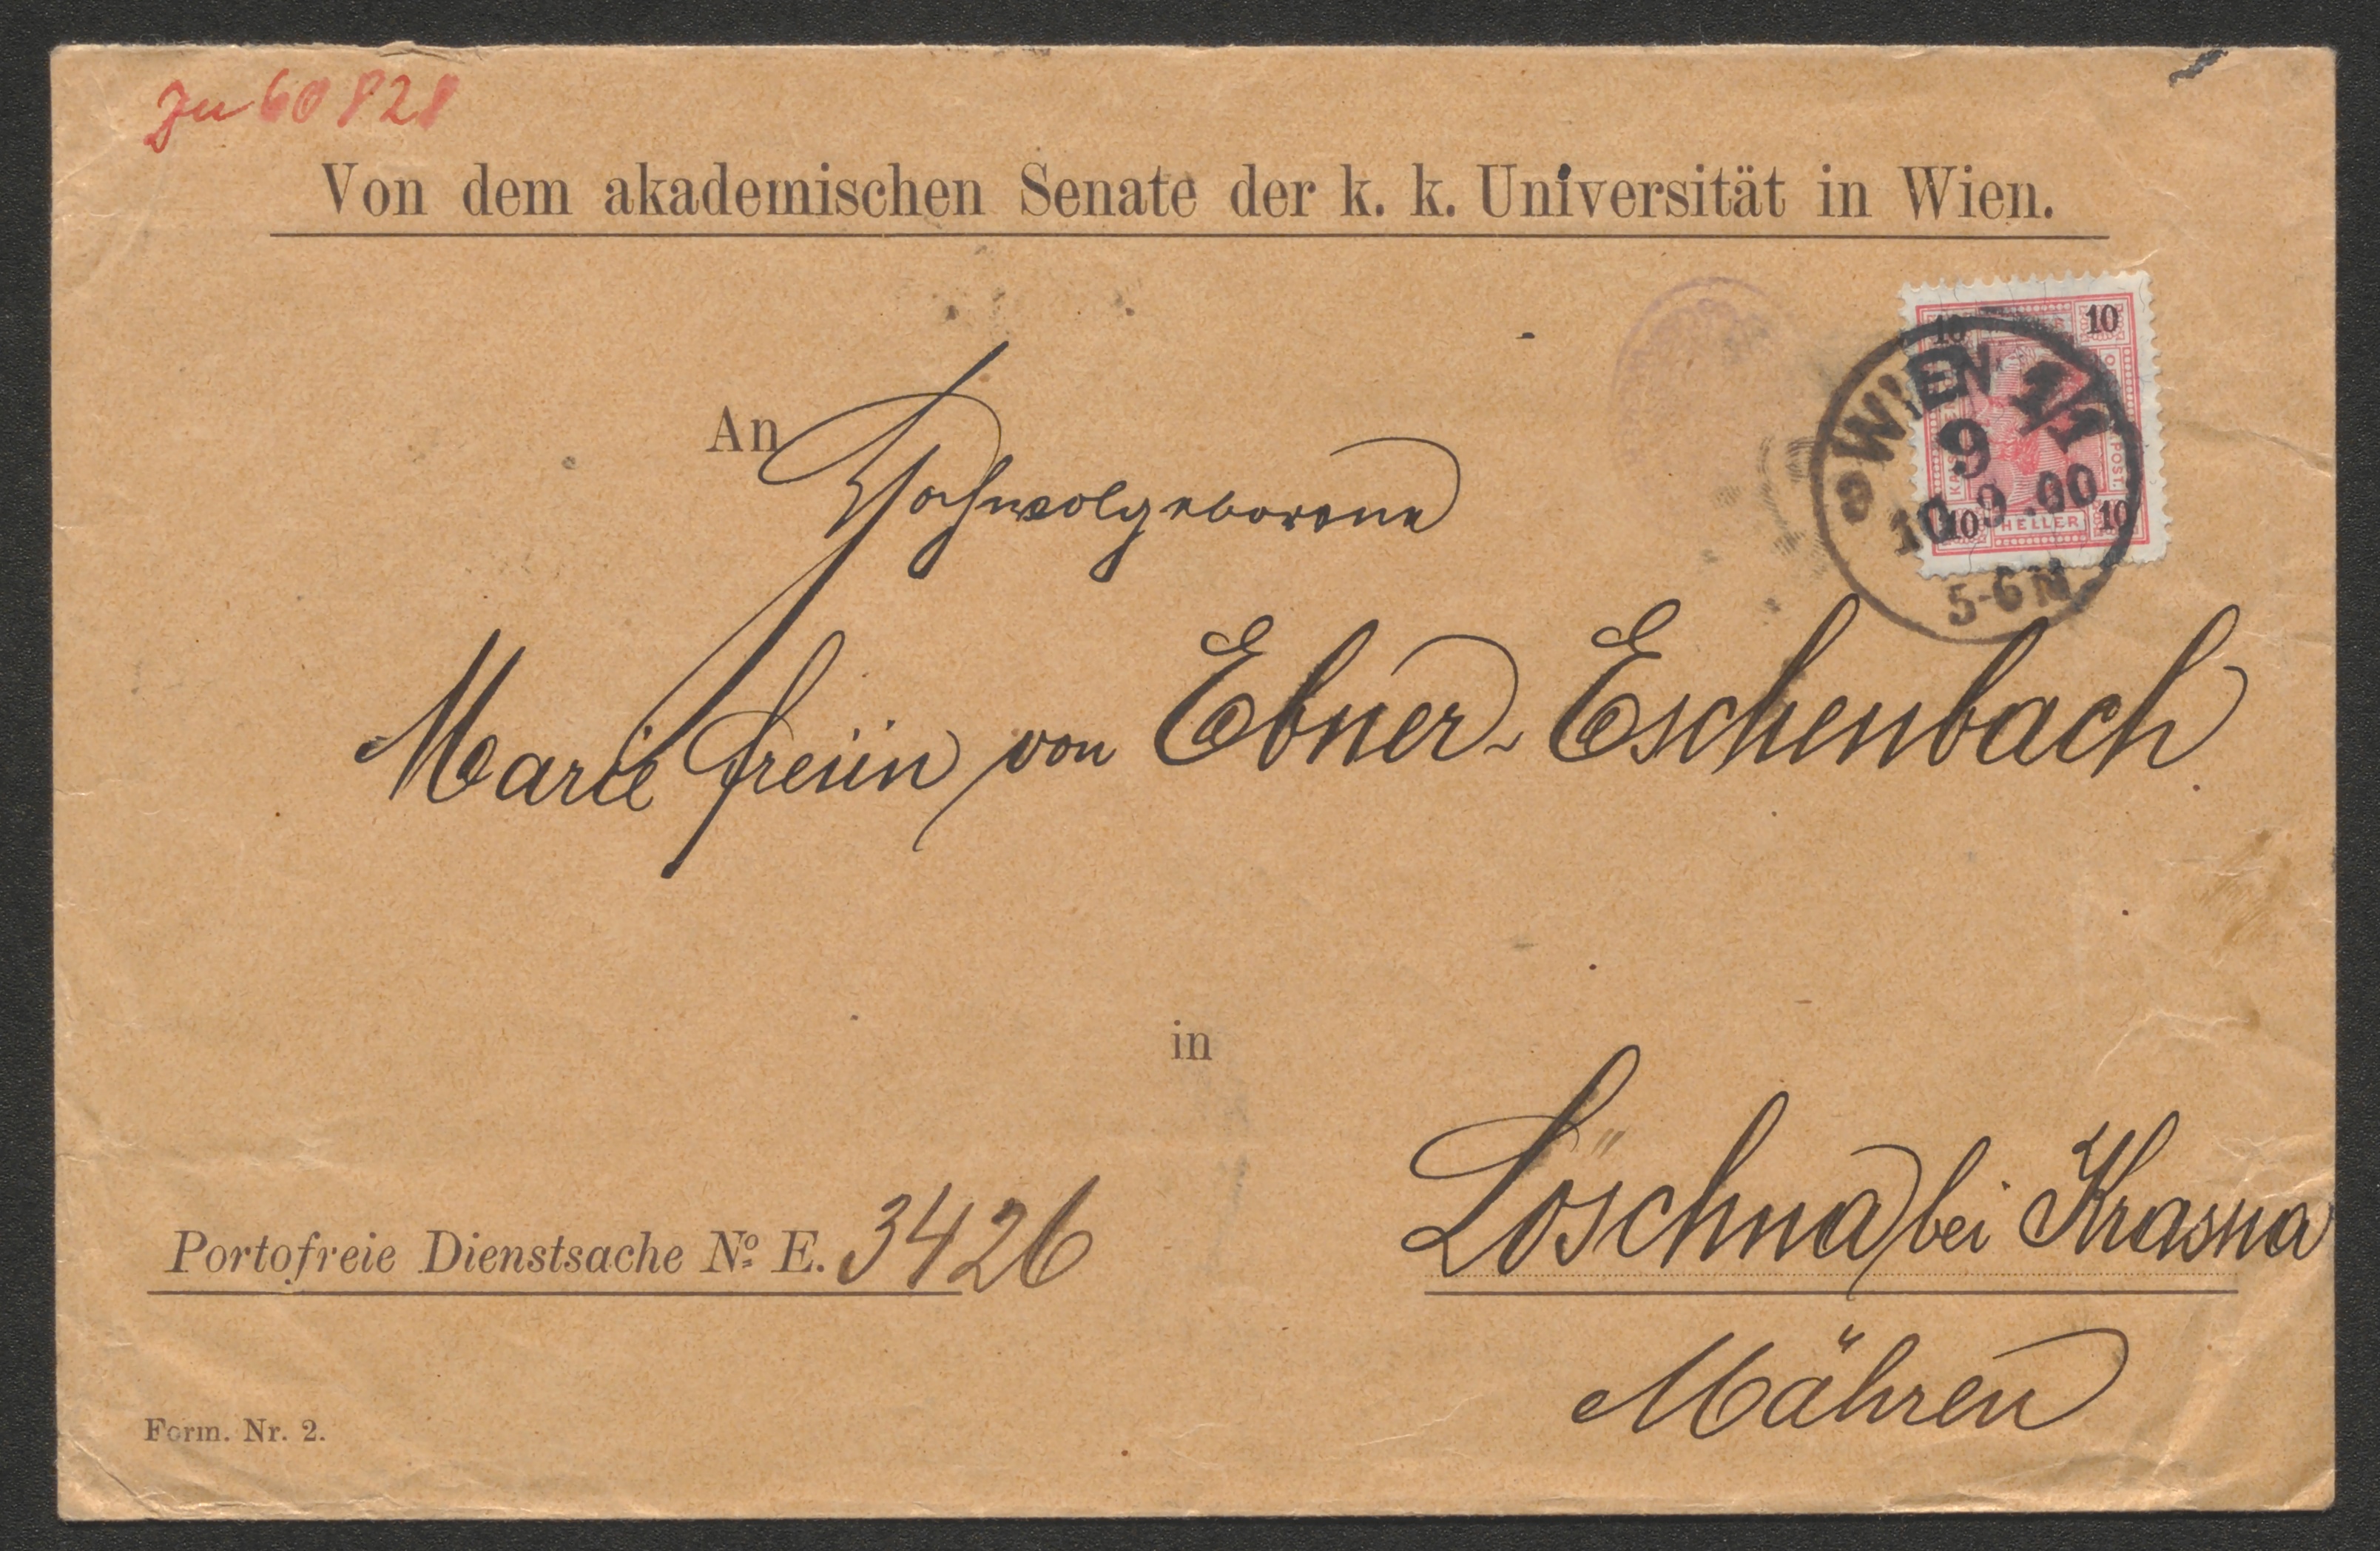 Zu 60828
Von dem akademischen Senate der k. k. Universität in Wien.
10 10
WIEN 1/1
9
10.9.00
10 HELLER 10
5-6N
An
Hochwolgeborene
Marie Freiin von Ebner-Eschenbach
in
Löschna bei Krasna
Portofreie Dienstsache No. E. 3426
Mähren
Form. Nr. 2.